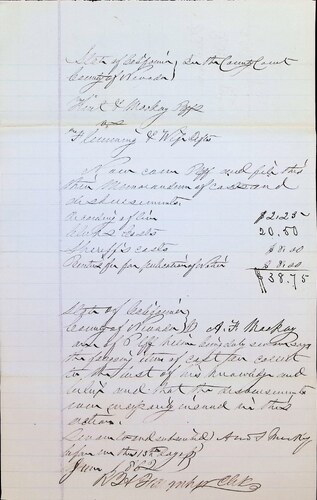 State of California } In the County Court
County of Nevada
Kent & Mackay Plffs
vs
Flemming & Wife Defts
Now come Plff and file this
their Memorandum of costs and
disbursements
Recording of Lien $2.25
Clerks Costs 20.50
Sheriff's costs $
for publication of Notice $
$38.75
State of California
County of Nevada } A. F. Mackay
one of Plffs being duly sworn says
the foregoing items of cost are correct
to the best of his knowledge and
belief and that the disbursements
were necessarily incurred in this
action.
Sworn to and subscribed
before me this 13th day of
June 1862
Clk